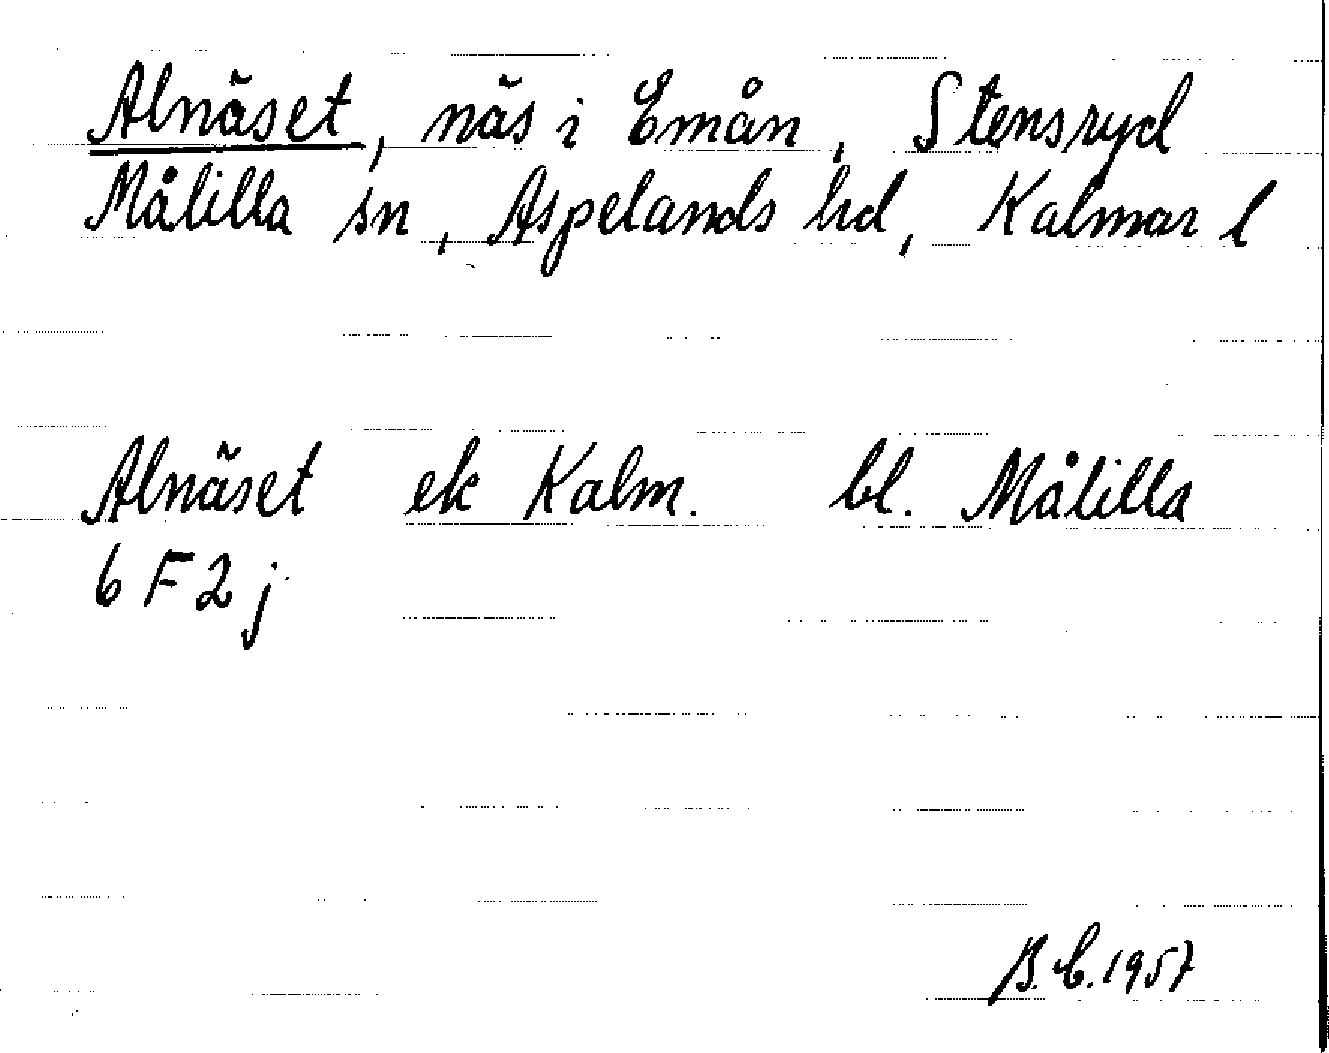 Alnäset, näs i Emån, Stensryd
Målilla sn, Aspelands hd, Kalmar l
Alnäset ek Kalm. bl. Målilla
6 F 2 j
B.C. 1957